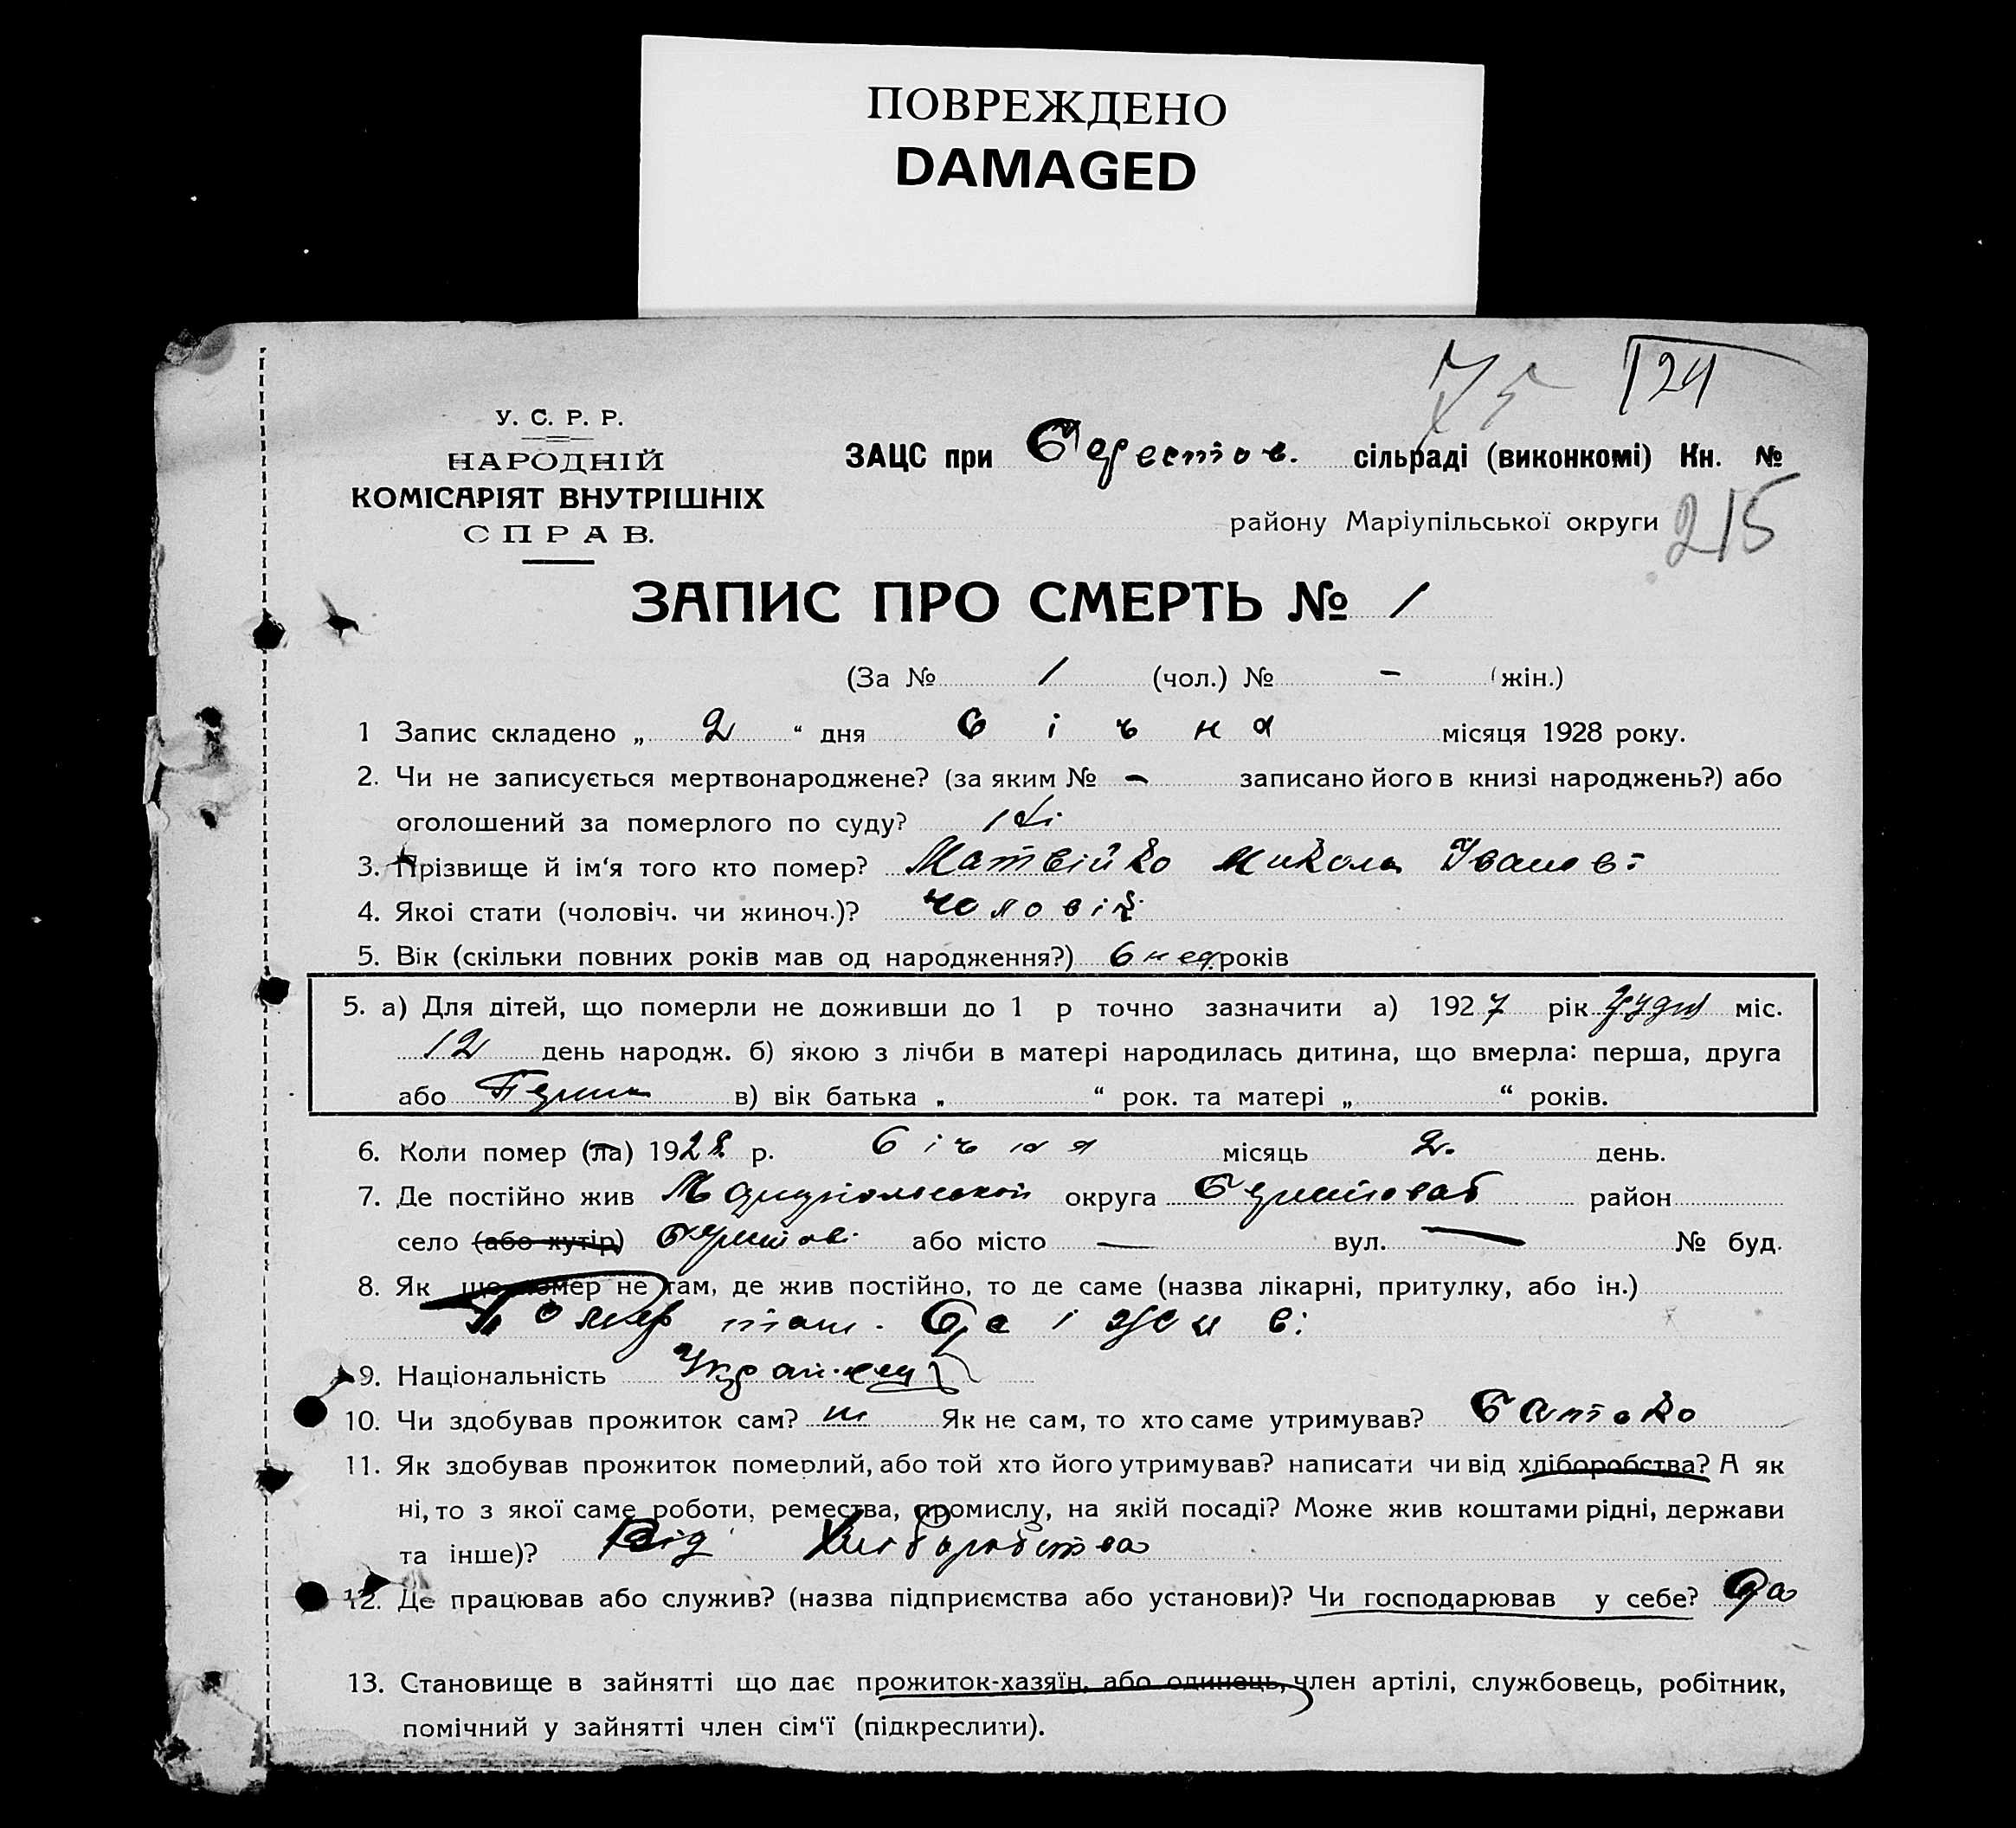 ПОВРЕЖДЕНО
DAMAGED
75 124
У. С. Р. Р.
НАРОДНІЙ
КОМІСАРІЯТ ВНУТРІШНІХ
СПРАВ.
ЗАЦС при сільраді (виконкомі) Кн. №
району Маріупільської округи 215
ЗАПИС ПРО СМЕРТЬ № 1
(За № 1 (чол.) № - (жін.)
1 Запис складено „ 2 “ дня Січня місяця 1928 року.
2. Чи не записується мертвонароджене? (за яким № - записано його в книзі народжень?) або
оголошений за померлого по суду?
3. Прізвище й ім‘я того кто помер? Матвійко Микола Іванов:
4. Якоі стати (чоловіч. чи жиноч.)? Чоловік
5. Вік (скільки повних років мав од народження?) 6 нед. років
5. а) Для дітей, що померли не доживши до 1 р точно зазначити а) 1927 рік Грудн міс.
12 день народж. б) якою з лічби в матері народилась дитина, що вмерла: перша, друга
або Перша в) вік батька „ “ рок. та матері „ “ років.
6. Коли помер (ла) 1928 р. Січня місяць 2. день.
7. Де постійно жив Маріупольськой округа район
село (або хутір) або місто — вул. — № буд.
8. Як що помер не там, де жив постійно, то де саме (назва лікарні, притулку, або ін.)
Помер там. Де і жив:
9. Національність Україн.ець
10. Чи здобував прожиток сам? ні Як не сам, то хто саме утримував? Батько
11. Як здобував прожиток померлий, або той хто його утримував? написати чи від хліборобства? А як
ні, то з якої саме роботи, ремества, промислу, на якій посаді? Може жив коштами рідні, держави
та інше)? Від Хліборобства
12. Де працював або служив? (назва підприємства або установи)? Чи господарював у себе? Да
13. Становище в зайнятті що дає прожиток-хазяїн, або одинець, член артілі, службовець, робітник,
помічний у зайнятті член сім‘ї (підкреслити).